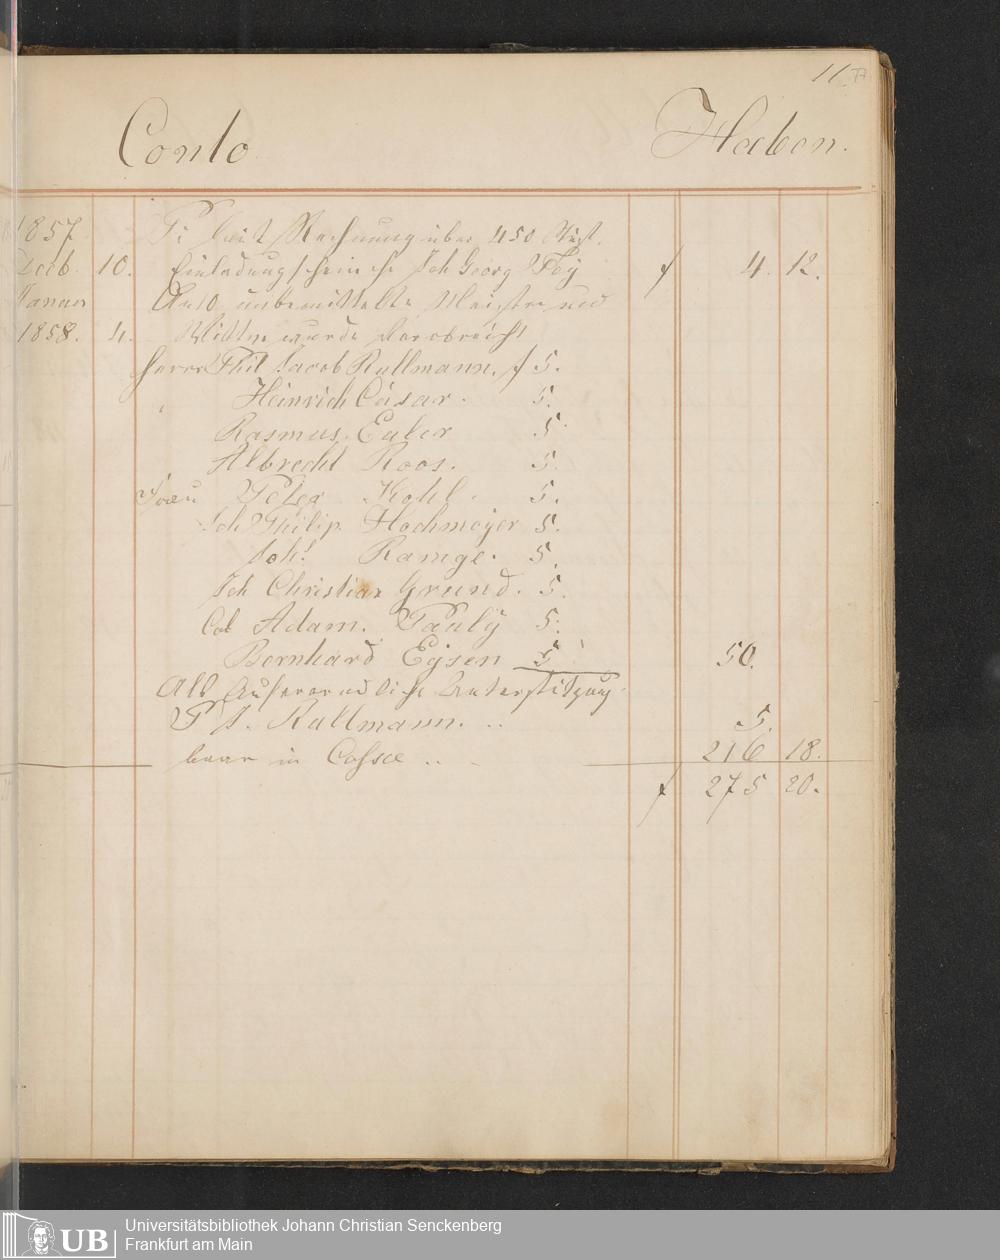 11. 77
Conto Haben.
1857 Pr laut Rechnung über 450 Stück
Decb. 10. Einladungscheine Joh Georg Foÿ f 4. 12.
Januar An 10 unbemittelte Meister und
1858. 4. Wittwe wurde verabreicht
Herrn Phil Jacob Rullmann. f 5.
" Heinrich Cäsar. 5.
Rasmus. Euler 5.
Albrecht Roos. 5.
Frau Peter Kohl. 5.
Joh Philip Hochmeyer 5.
Johs Ramge. 5.
Joh Christian Grund. 5.
Adam. Pauly 5.
Bernhard Eysen 5 50.
Als Auserordliche Unterstützung
P J. Rullmann. .. 5.
baar in Cassa .. 216 18.
f 275 20.
UB
Universitätsbibliothek Johann Christian Senckenberg
Frankfurt am Main